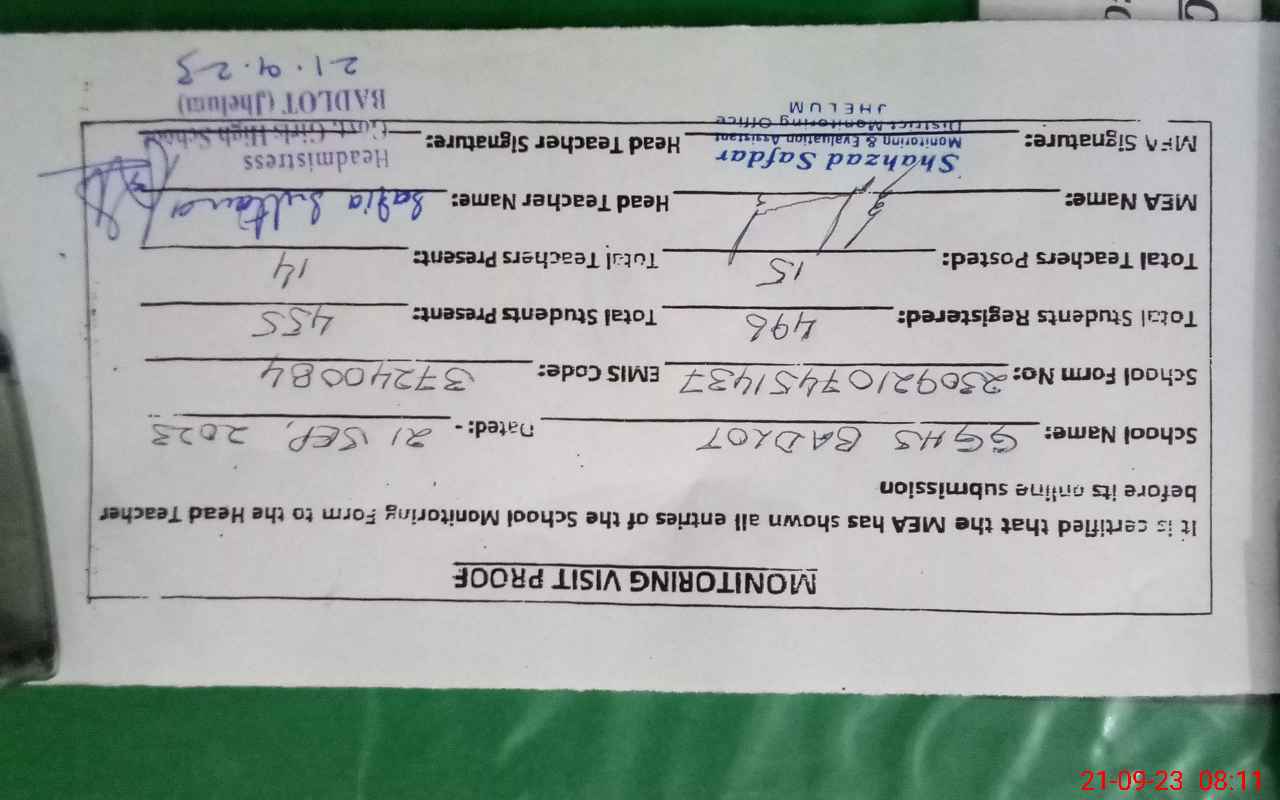 MONITORING VISIT PROOF
It is certified that the MEA has shown all entries of the School Monitoring Form to the Head Teacher
before its online submission
School Name: GGHS BADLOT Dated: - 21 SEP, 2023
School Form No: 23092107451437 EMIS Code: 37240084
Total Students Registered: 496 Total Students Present: 455
Total Teachers Posted: 15 Total Teachers Present: 14
MEA Name: Head Teacher Name: Safia Sultana
MEA Signature: Shahzad Safdar Head Teacher Signature: Headmistress
Monitoring & Evaluation Assistant Govt. Girls High School
District Monitoring Office BADLOT (Jhelum)
JHELUM 21.9.23
21-09-23 08:11